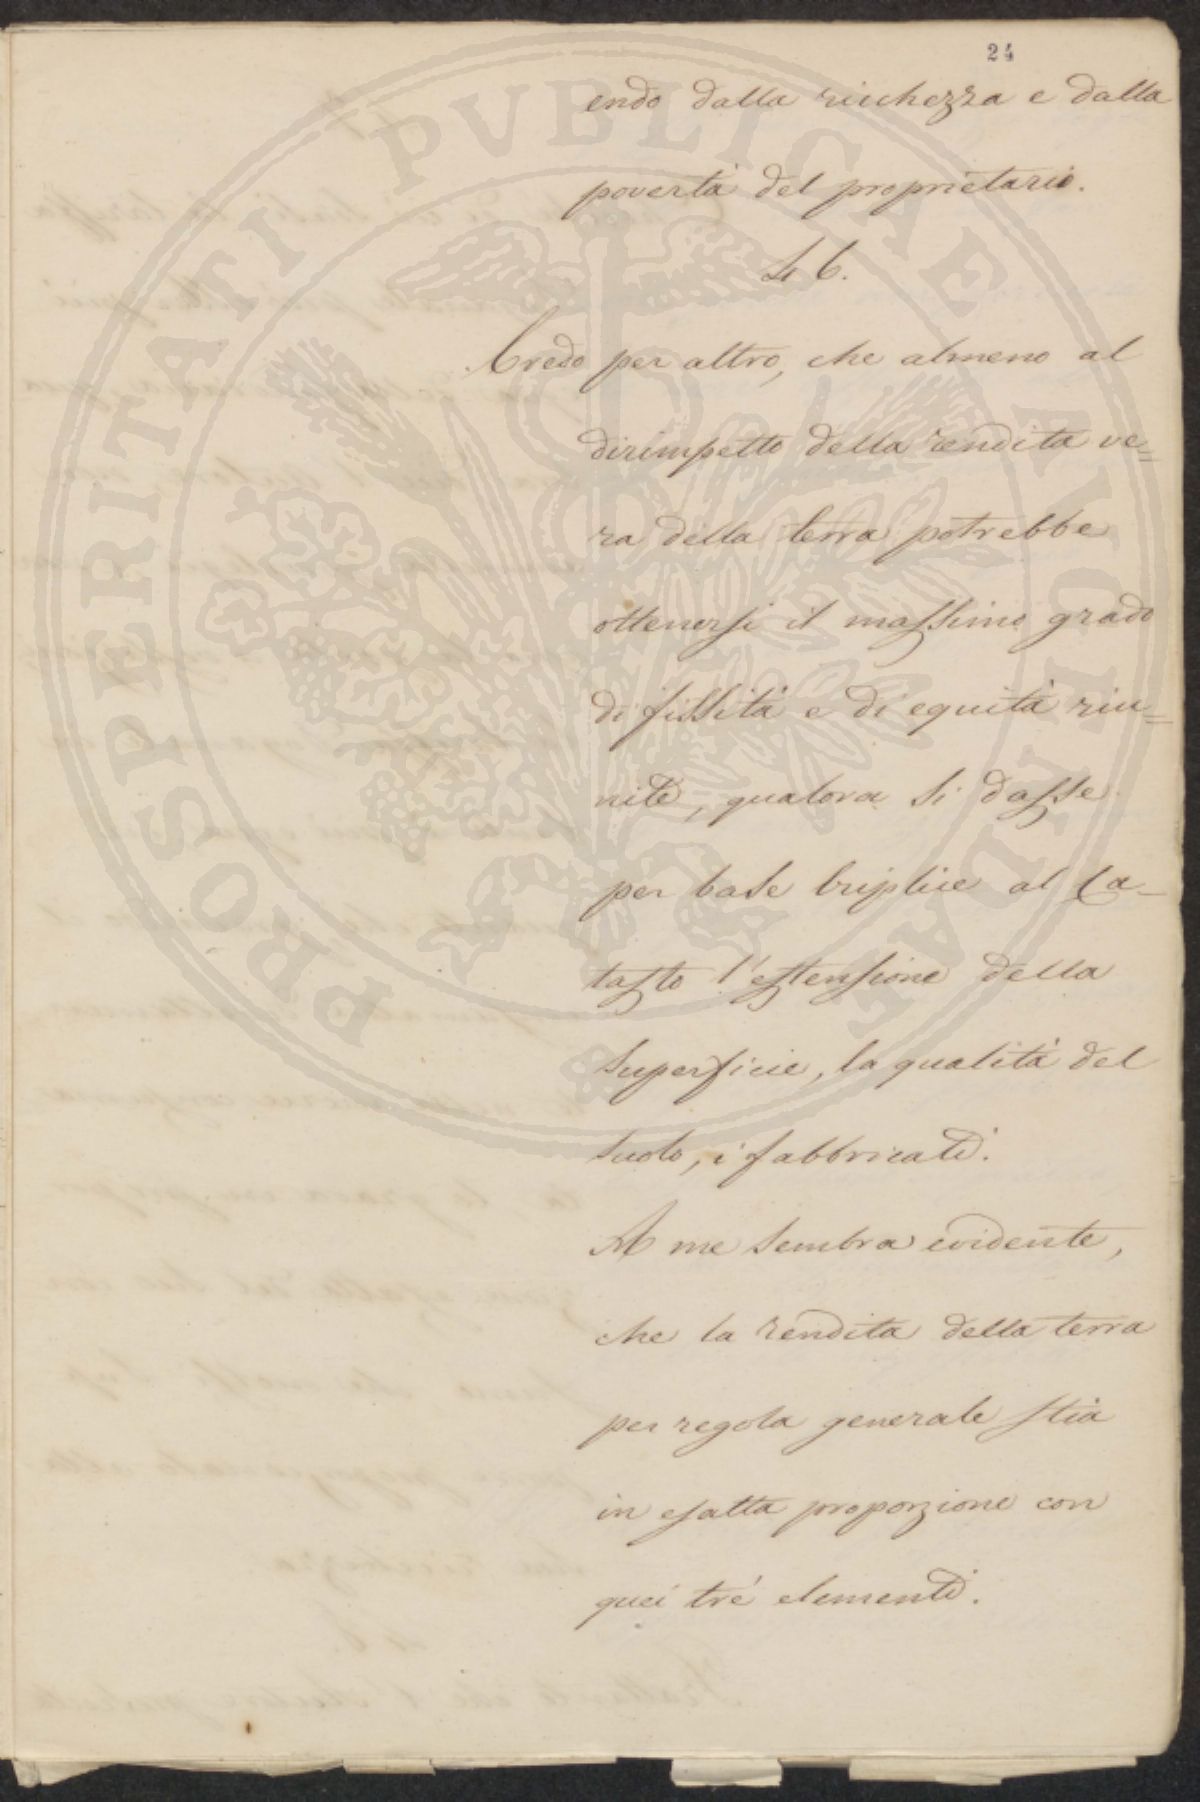 24
endo dalla ricchezza e dalla
povertà del proprietario.
46.
Credo per altro, che almeno al
dirimpetto della rendita ve=
ra della terra potrebbe
ottenersi il massimo grado
di fissità e di equità riu=
nite, qualora si dasse
per base triplice al Ca-
tasto l'estensione della
superficie, la qualità del
suolo, i fabbricati.
A me sembra evidente,
che la rendita della terra
per regola generale stia
in esatta proporzione con
quei tré elementi.
PROSPERITATI PVBLICAE AVGENDAE